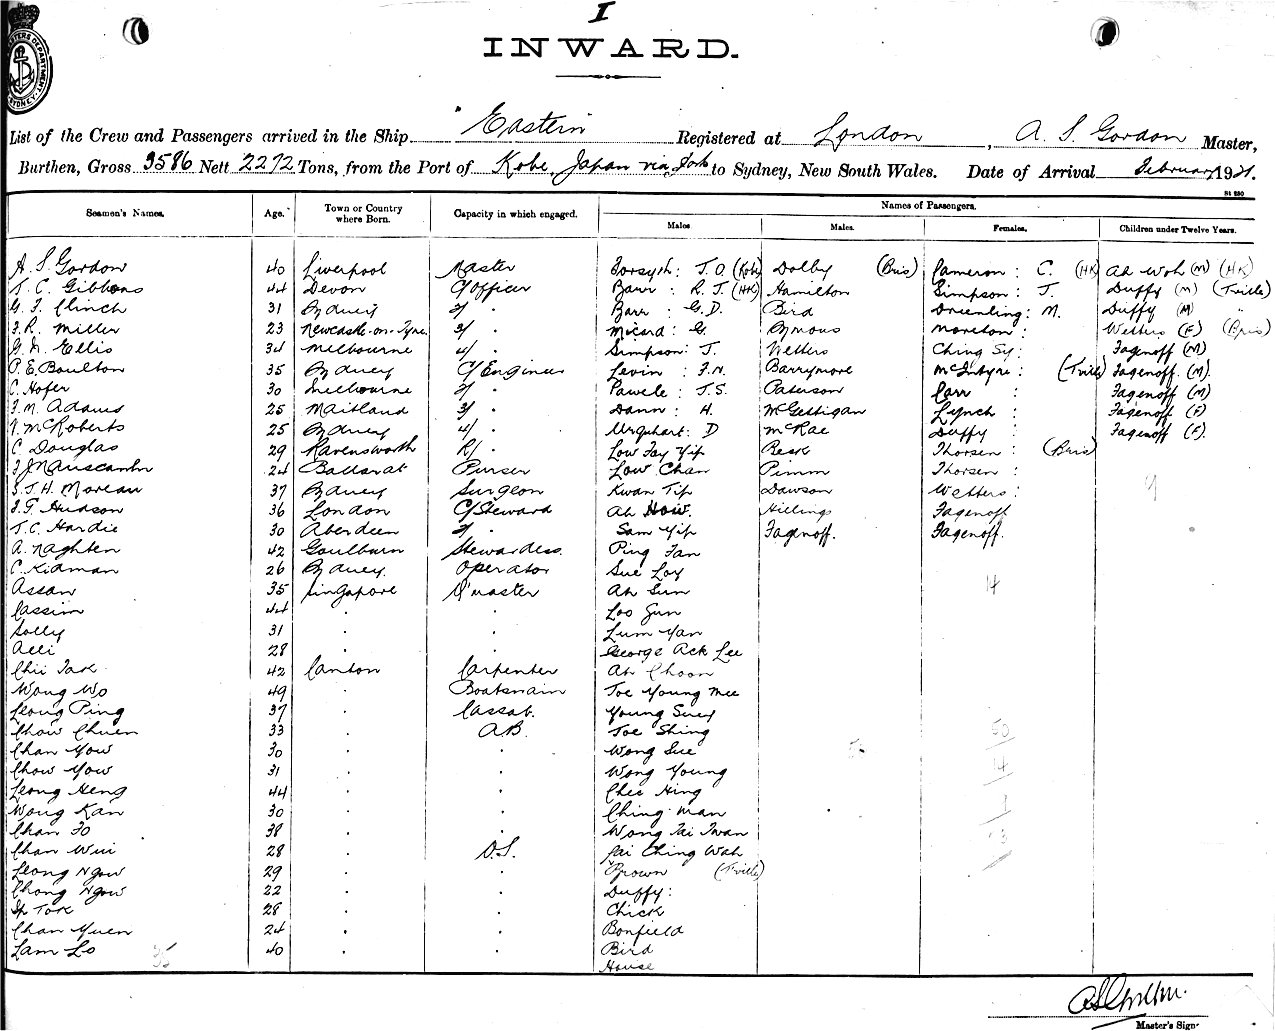 I
INWARD.
List of the Crew and Passengers arrived in the Ship "Eastern Registered at London, A. S. Gordon Master,
Burthen, Gross 3586 Nett 2272 Tons, from the Port of Kobe, Japan via Ports to Sydney, New South Wales. Date of Arrival February 1921.
St 230
Seamen's Names. Age. Town or Country where Born. Capacity in which engaged. Names of Passengers.
Males Males. Females. Children under Twelve Years.
A. S. Gordon 40 Liverpool Master Forsyth: J. O. (Kobe) Dolby (Bris) Cameron: C. (HK) Ah Woh (M) (HK)
T. C. Gibbons 44 Devon C/Officer Barr: R. J. (HK) Hamilton Simpson: J. Duffy (M) (Tville)
G. F. Clinch 31 Sydney 2/ . Barr: G. D. Bird M. Duffy (M)
J. R. Miller 23 Newcastle-on-Tyne 3/ . Micard: G. Symous Moreton: Wetters (F) (Bris)
G. N. Ellis 34 Melbourne 4/ . Simpson: J. Wetters Ching Sy: Fagenoff (M)
P. E. Boulton 35 Sydney C/Engineer Levin: F. N. Barrymore McIntyre: (Tville) Fagenoff. (M).
C. Hofer 30 Melbourne 2/ . Pawele: J. S. Paterson Carr : Fagenoff (M)
J. M. Adams 25 Maitland 3/ . Dann: H. McGettigan Lynch : Fagenoff (F)
McRoberts 25 Sydney 4/ . Urquhart: D McRae Duffy : Fagenoff (F).
C. Douglas 29 Ravensworth R/ . Low Fay Yip Thorsen : (Bris)
24 Ballarat Purser Low Chan Pimm Thorsen :
S. J. H. Moreau 37 Sydney Surgeon Kwan Tip Dawson Wetters: 9
J. G. Hudson 36 London C/Steward Ah How. Hillings Fagenoff
T. C. Hardie 30 Aberdeen 2/ . Sam Yip Fagenoff. Fagenoff.
A. Naghten 42 Goulburn Stewardess. Ping Fan
C. Kidman 26 Sydney. Operator Sue Loy
Assan 35 Singapore Q'master Ah Sun 14
Cassim 44 . . Loo Gun
Solly 31 . . Lum Yan
Alli 28 . . George Ack Lee
Chii Tark 42 Canton Carpenter Ah Choon
Wong Wo 49 . Boatswain Toe Young Mee
Leong Ping 37 . Cassab. Young Suey
Chow Chuen 33 . AB. Toe Shing 50
Chan Yow 30 . . Wong Sue
Chow Yow 31 . . Wong Young 14
Leong Heng 44 . . Chee Hing
Wong Kan 30 . . Ching Man
Chan Fo 38 . . Wong Tai Twan
Chan Wui 28 . O.S. Lai Ching Wah
Leong Ngow 29 . . Brown (Tville)
Chong Ngow 22 . . Duffy:
Ip Tork 28 . . Chick
Chan Yuen 24 . . Bonfield
Lam Lo 35 40 . . Bird
House
Master's Sign